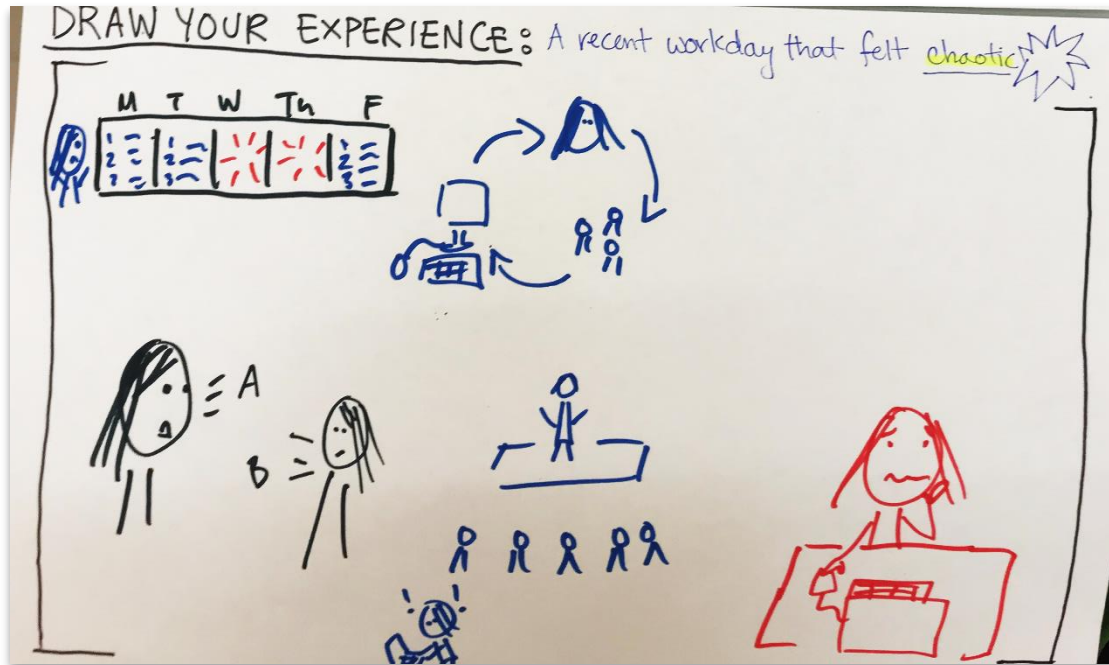 DRAW YOUR EXPERIENCE: A recent workday that felt chaotic
M T W Th F
1 1 1
2 2 2
3 3 3
A
B